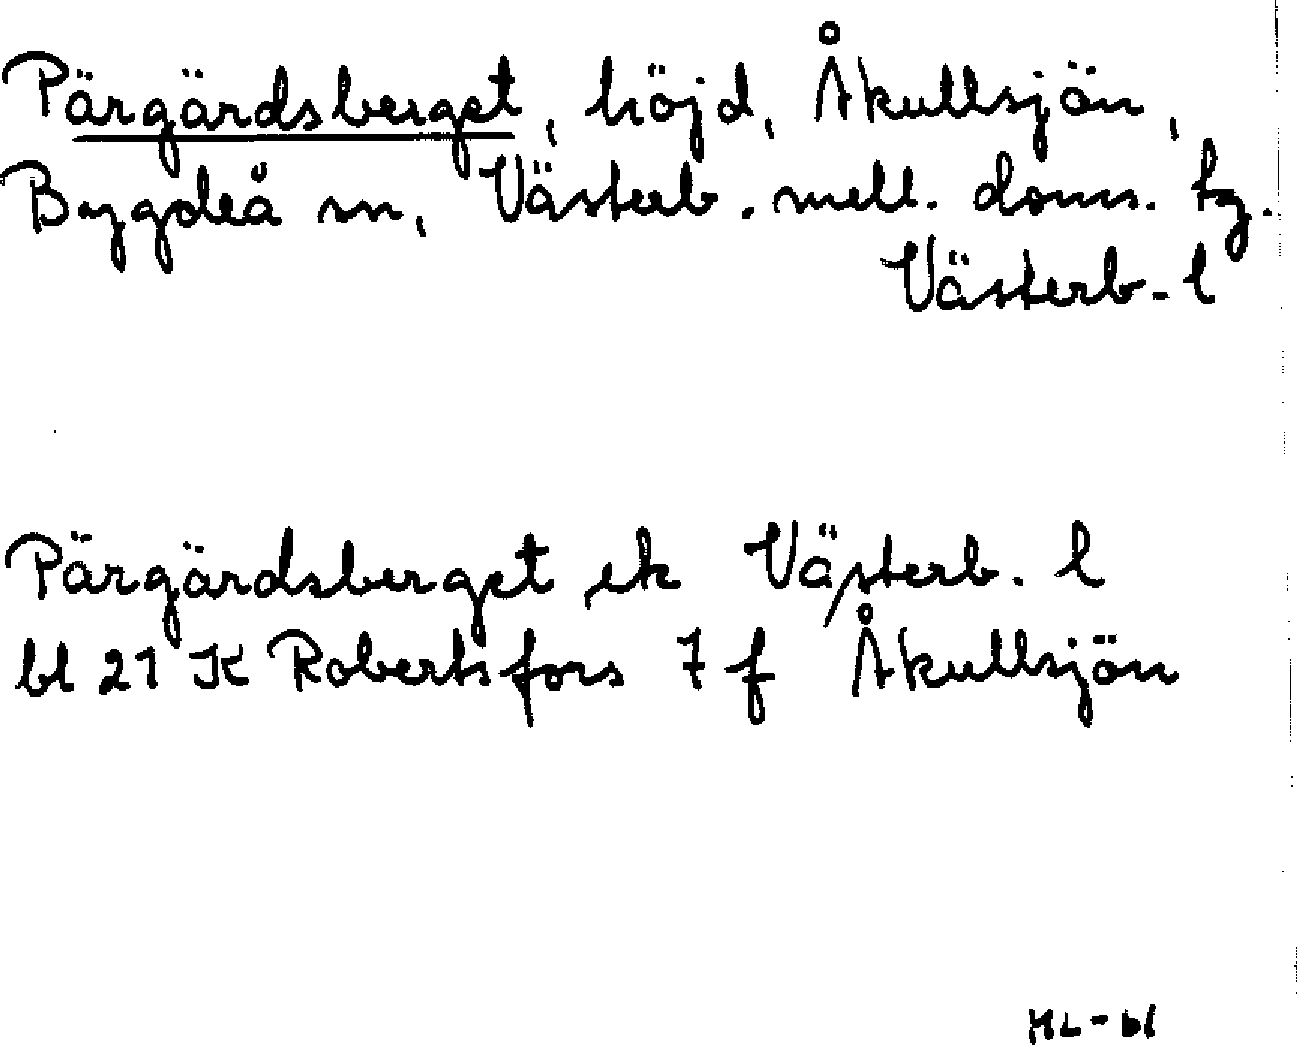 Pärgärdsberget, höjd, Åkullsjön,
Bygdeå sn, Västerb. mell. doms. tg.
Västerb. l
Pärgärdsberget ek Västerb. l
bl 21 K Robertsfors 7 f Åkullsjön